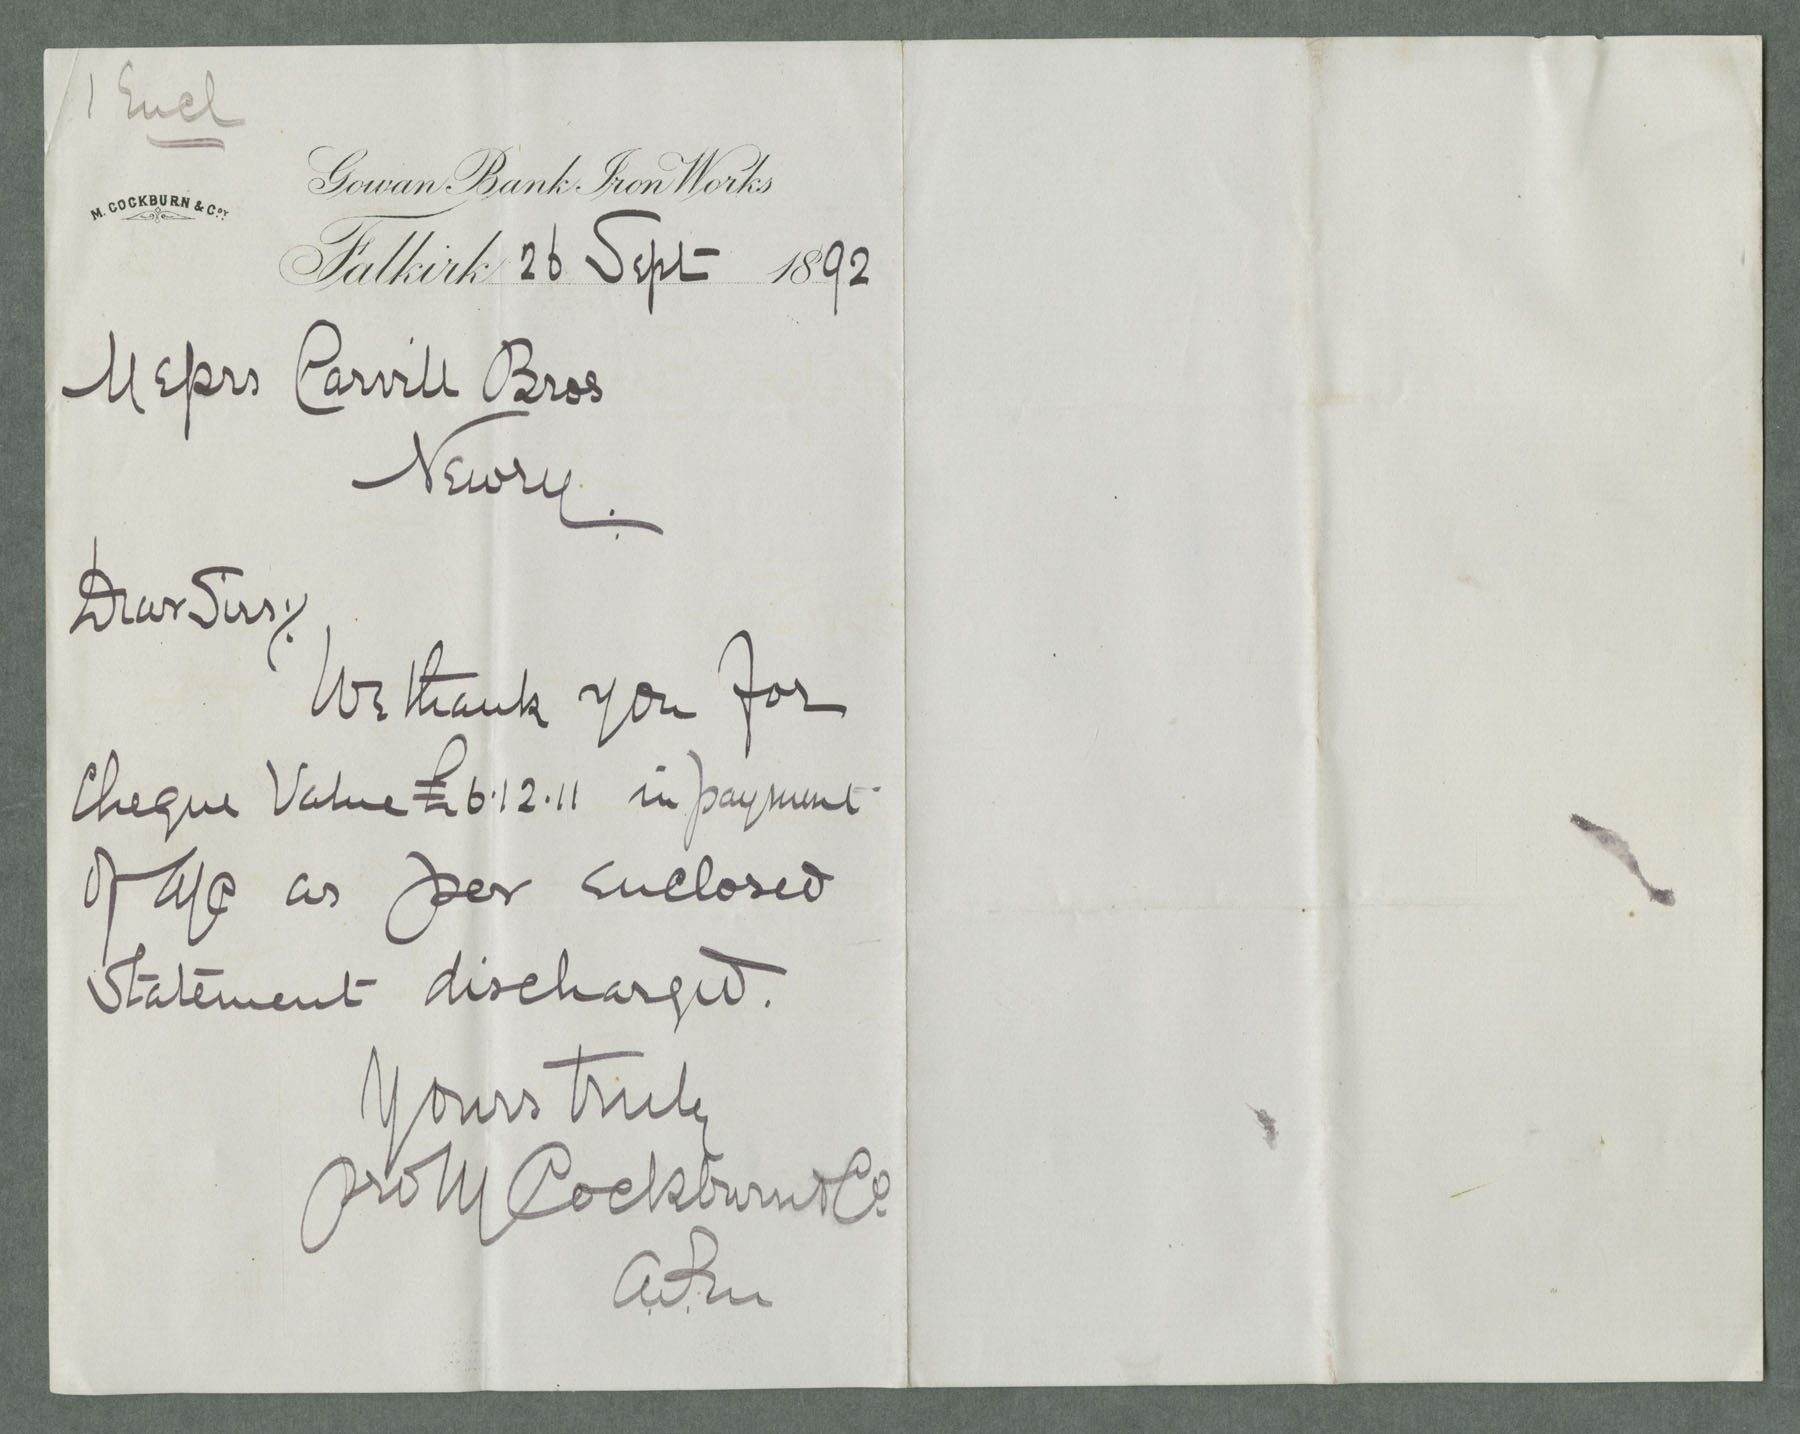 1 Encl
Gowan Bank Iron Works
M. COCKBURN & Coy.
Falkirk 26 Sept 1892
Messrs Carvill Bros
Newry.
Dear Sirs,
We thank you for
Cheque Value £6.12.11 in payment
of a/c as per enclosed
Statement discharged.
Yours truly
pro M Cockburn & Co